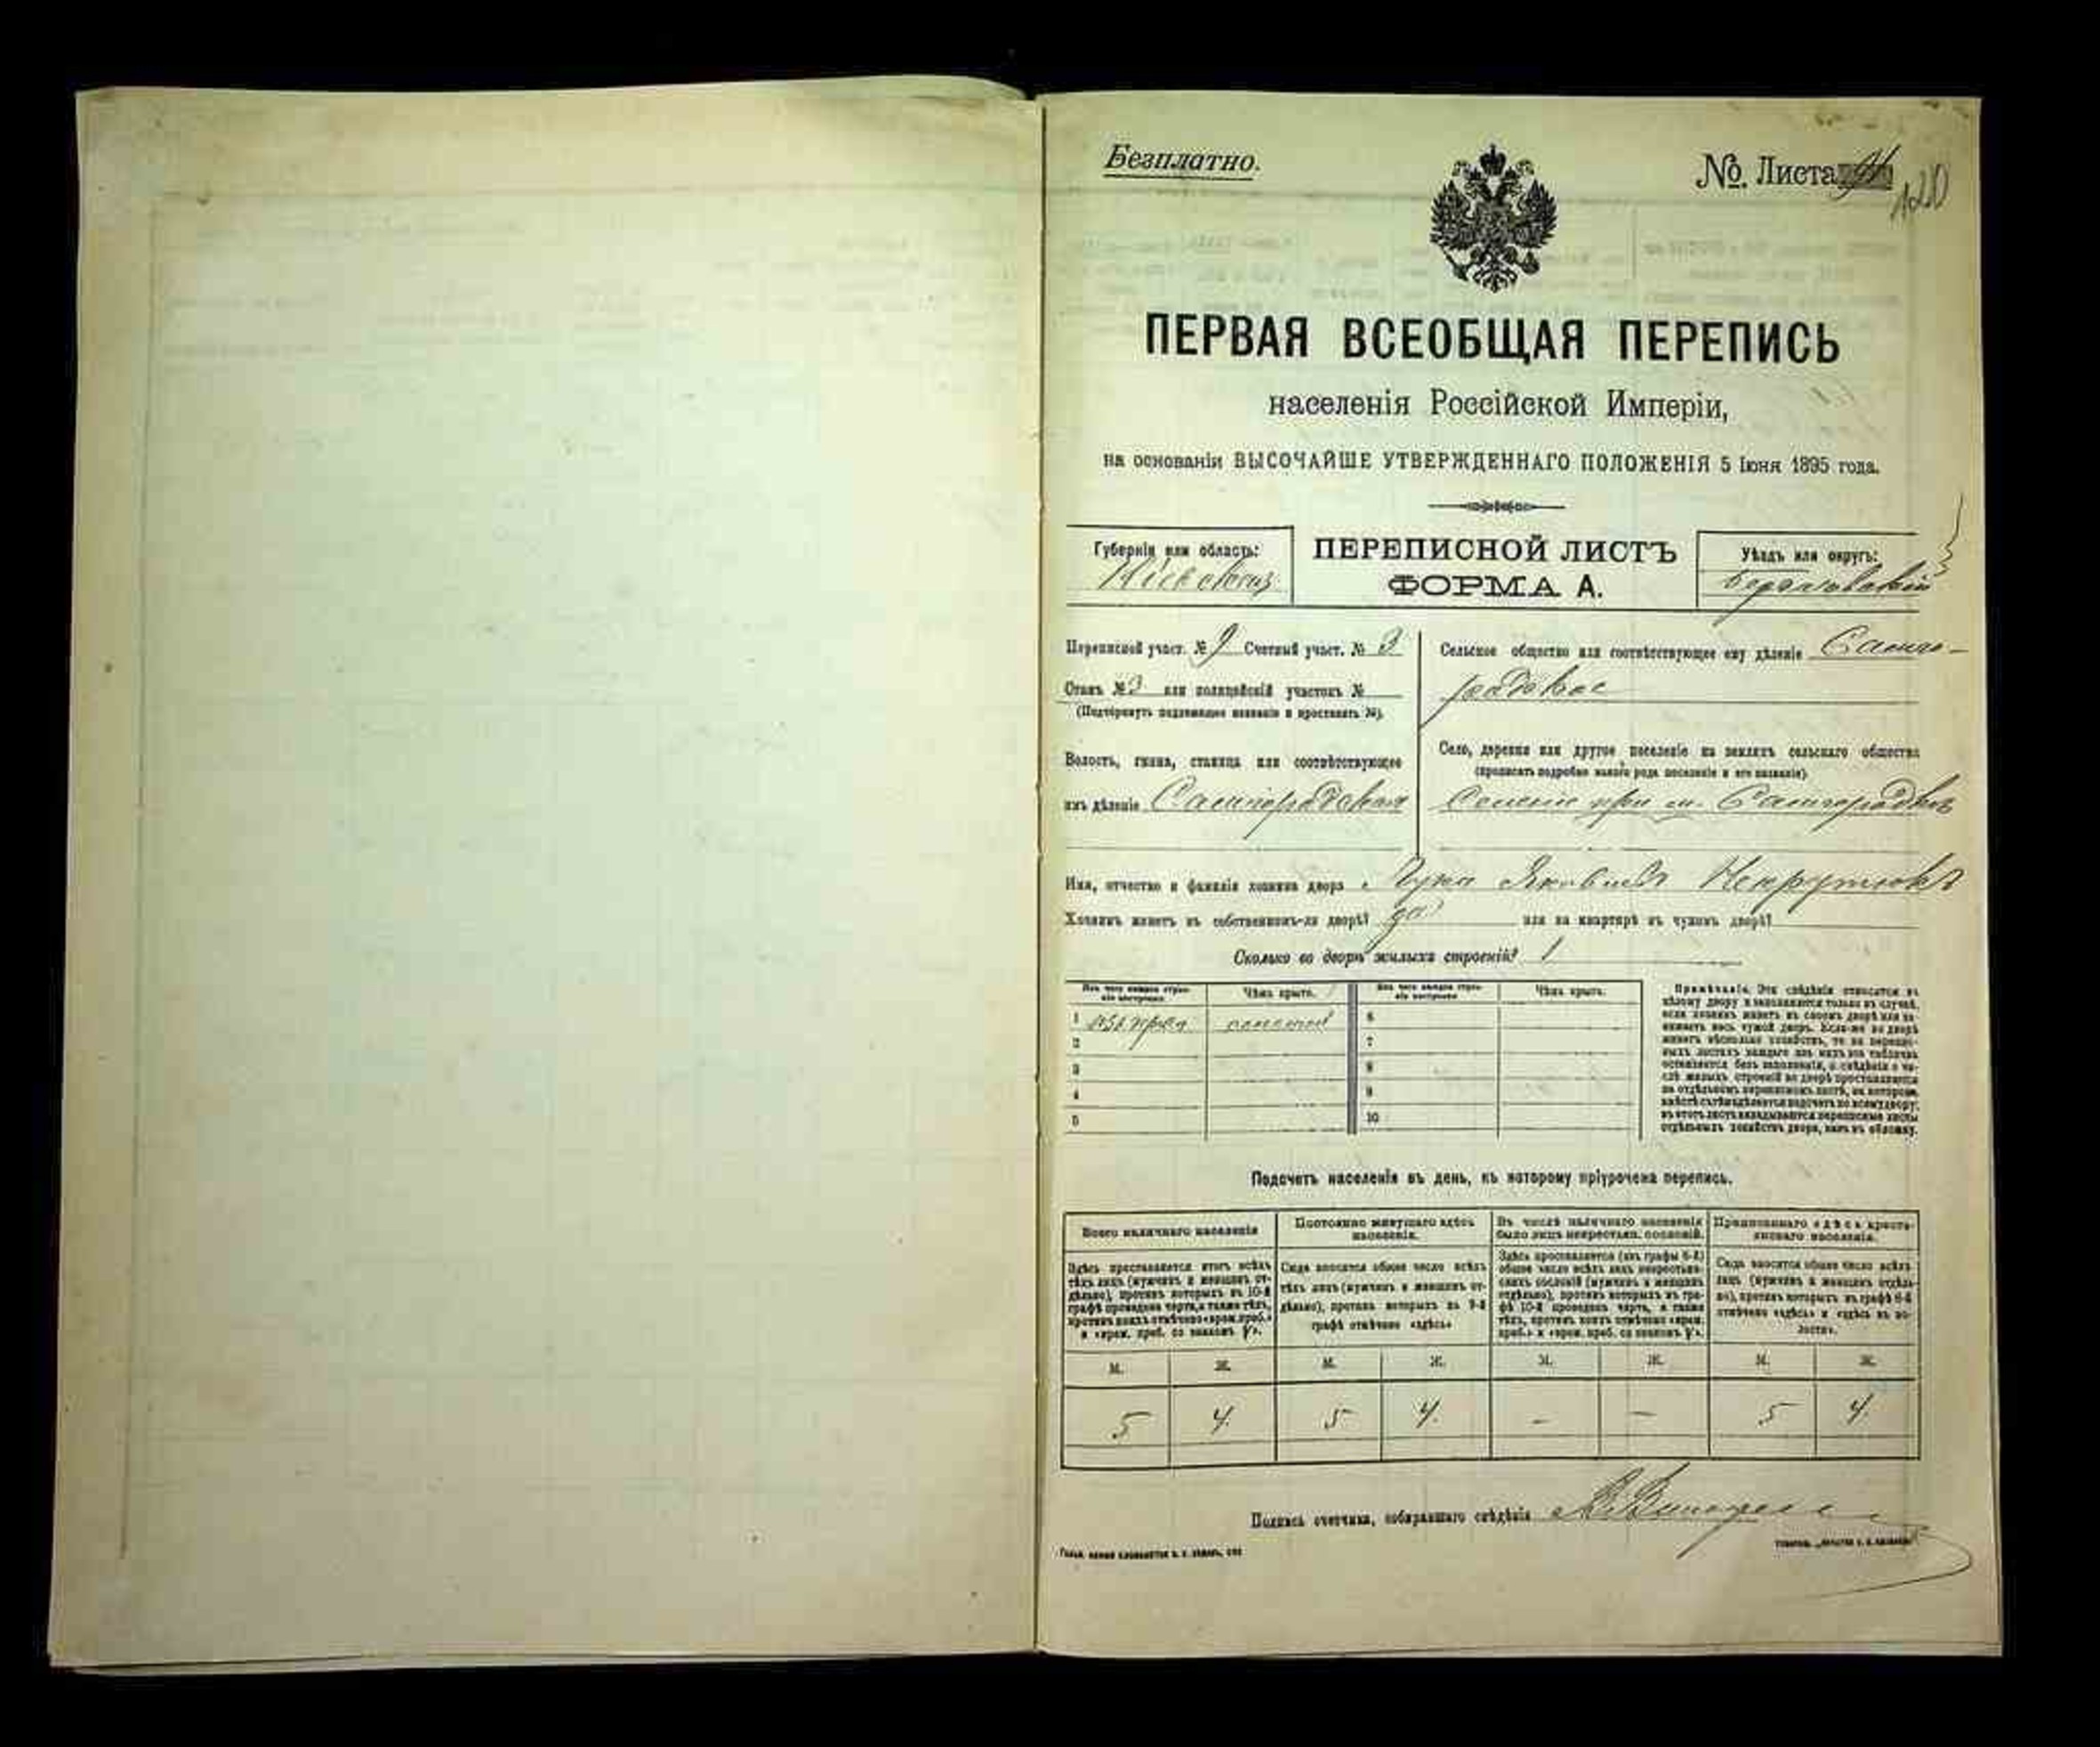 Безплатно.
№. Листа
120
ПЕРВАЯ ВСЕОБЩАЯ ПЕРЕПИСЬ
населенія Россійской Имперіи,
на основаніи ВЫСОЧАЙШЕ УТВЕРЖДЕННАГО ПОЛОЖЕНІЯ 5 Іюня 1895 года.
Губернія или область:
Кіевская
ПЕРЕПИСНОЙ ЛИСТЪ
ФОРМА А.
Уѣздъ или округъ:
Переписной участ. № 9 Счетный участ. № 3
Станъ № 3 или полицейскій участокъ №
(Подчеркнуть подлежащее названіе и проставить №).
Волость, гмина, станица или соотвѣтствующее
имъ дѣленіе Самгородская
Сельское общество или соотвѣтствующее ему дѣленіе Самго-
родское
Село, деревня или другое поселеніе на земляхъ сельскаго общества
(прописать подробно какого рода поселеніе и его названіе).
Селеніе при м. Самгородкѣ
Имя, отчество и фамилія хозяина двора Лука Яковлевъ
Хозяинъ живетъ въ собственномъ-ли дворѣ? да или на квартирѣ въ чужомъ дворѣ?
Сколько во дворѣ жилыхъ строеній? 1
Изъ чего каждое строе-
ніе построено.
Чѣмъ крыто.
Изъ чего каждое строе-
ніе построено.
Чѣмъ крыто.
1 изъ дерева соломой 6
2 7
3 8
4 9
5 10
Примѣчаніе. Эти свѣдѣнія относятся къ
цѣлому двору и заполняются только въ случаѣ,
если хозяинъ живетъ въ своемъ дворѣ или за-
нимаетъ весь чужой дворъ. Если-же во дворѣ
живетъ нѣсколько хозяйствъ, то на перепис-
ныхъ листахъ каждаго изъ нихъ эта табличка
остается безъ заполненія, а свѣдѣнія о чи-
слѣ жилыхъ строеній во дворѣ проставляются
на отдѣльномъ переписномъ листѣ, на которомъ
вмѣстѣ съ тѣмъ дѣлается подсчетъ по всему двору;
въ этотъ листъ вкладываются переписные листы
отдѣльныхъ хозяйствъ двора, какъ въ обложку.
Подсчетъ населенія въ день, къ которому пріурочена перепись.
Всего наличнаго населенія
Постоянно живущаго здѣсь
населенія.
Въ числѣ наличнаго населенія
было лицъ некрестьян. сословій.
Приписаннаго здѣсь кресть-
янскаго населенія.
Здѣсь проставляется итогъ всѣхъ
тѣхъ лицъ (мужчинъ и женщинъ от-
дѣльно), противъ которыхъ въ 10-й
графѣ проведена черта, а также тѣхъ,
противъ коихъ отмѣчено «врем. преб.»
и «врем. преб. со знакомъ V».
Сюда вносится общее число всѣхъ
тѣхъ лицъ (мужчинъ и женщинъ от-
дѣльно), противъ которыхъ въ 9-й
графѣ отмѣчено «здѣсь»
Здѣсь проставляется (изъ графы 6-й)
общее число всѣхъ лицъ некрестьян-
скихъ сословій (мужчинъ и женщинъ
отдѣльно), противъ которыхъ въ гра-
фѣ 10-й проведена черта, а также
тѣхъ, противъ коихъ отмѣчено «врем.
преб.» и «врем. преб. со знакомъ V».
Сюда вносится общее число всѣхъ
лицъ (мужчинъ и женщинъ отдѣль-
но), противъ которыхъ въ графѣ 8-й
отмѣчено «здѣсь» и «здѣсь въ во-
лости».
М. Ж. М. Ж. М. Ж. М. Ж.
5 4. 5 4. – – 5 4.
Подпись счетчика, собиравшаго свѣдѣнія